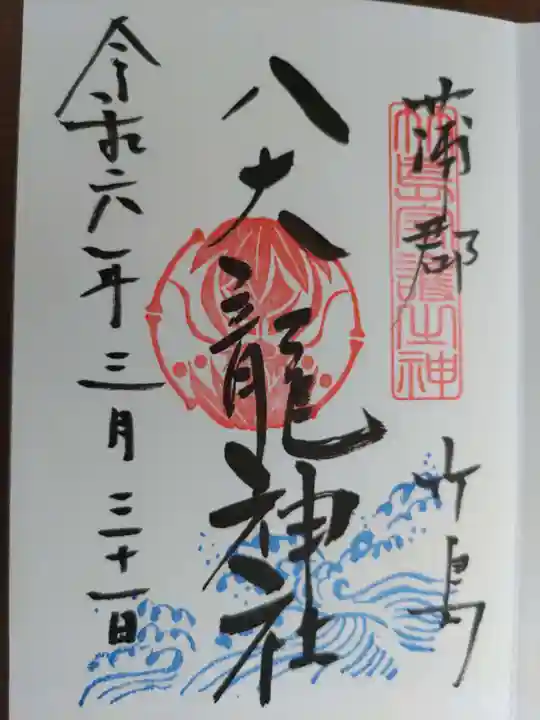 蒲郡
竹島
竹島守護之神
八大龍神社
令和六年三月三十一日